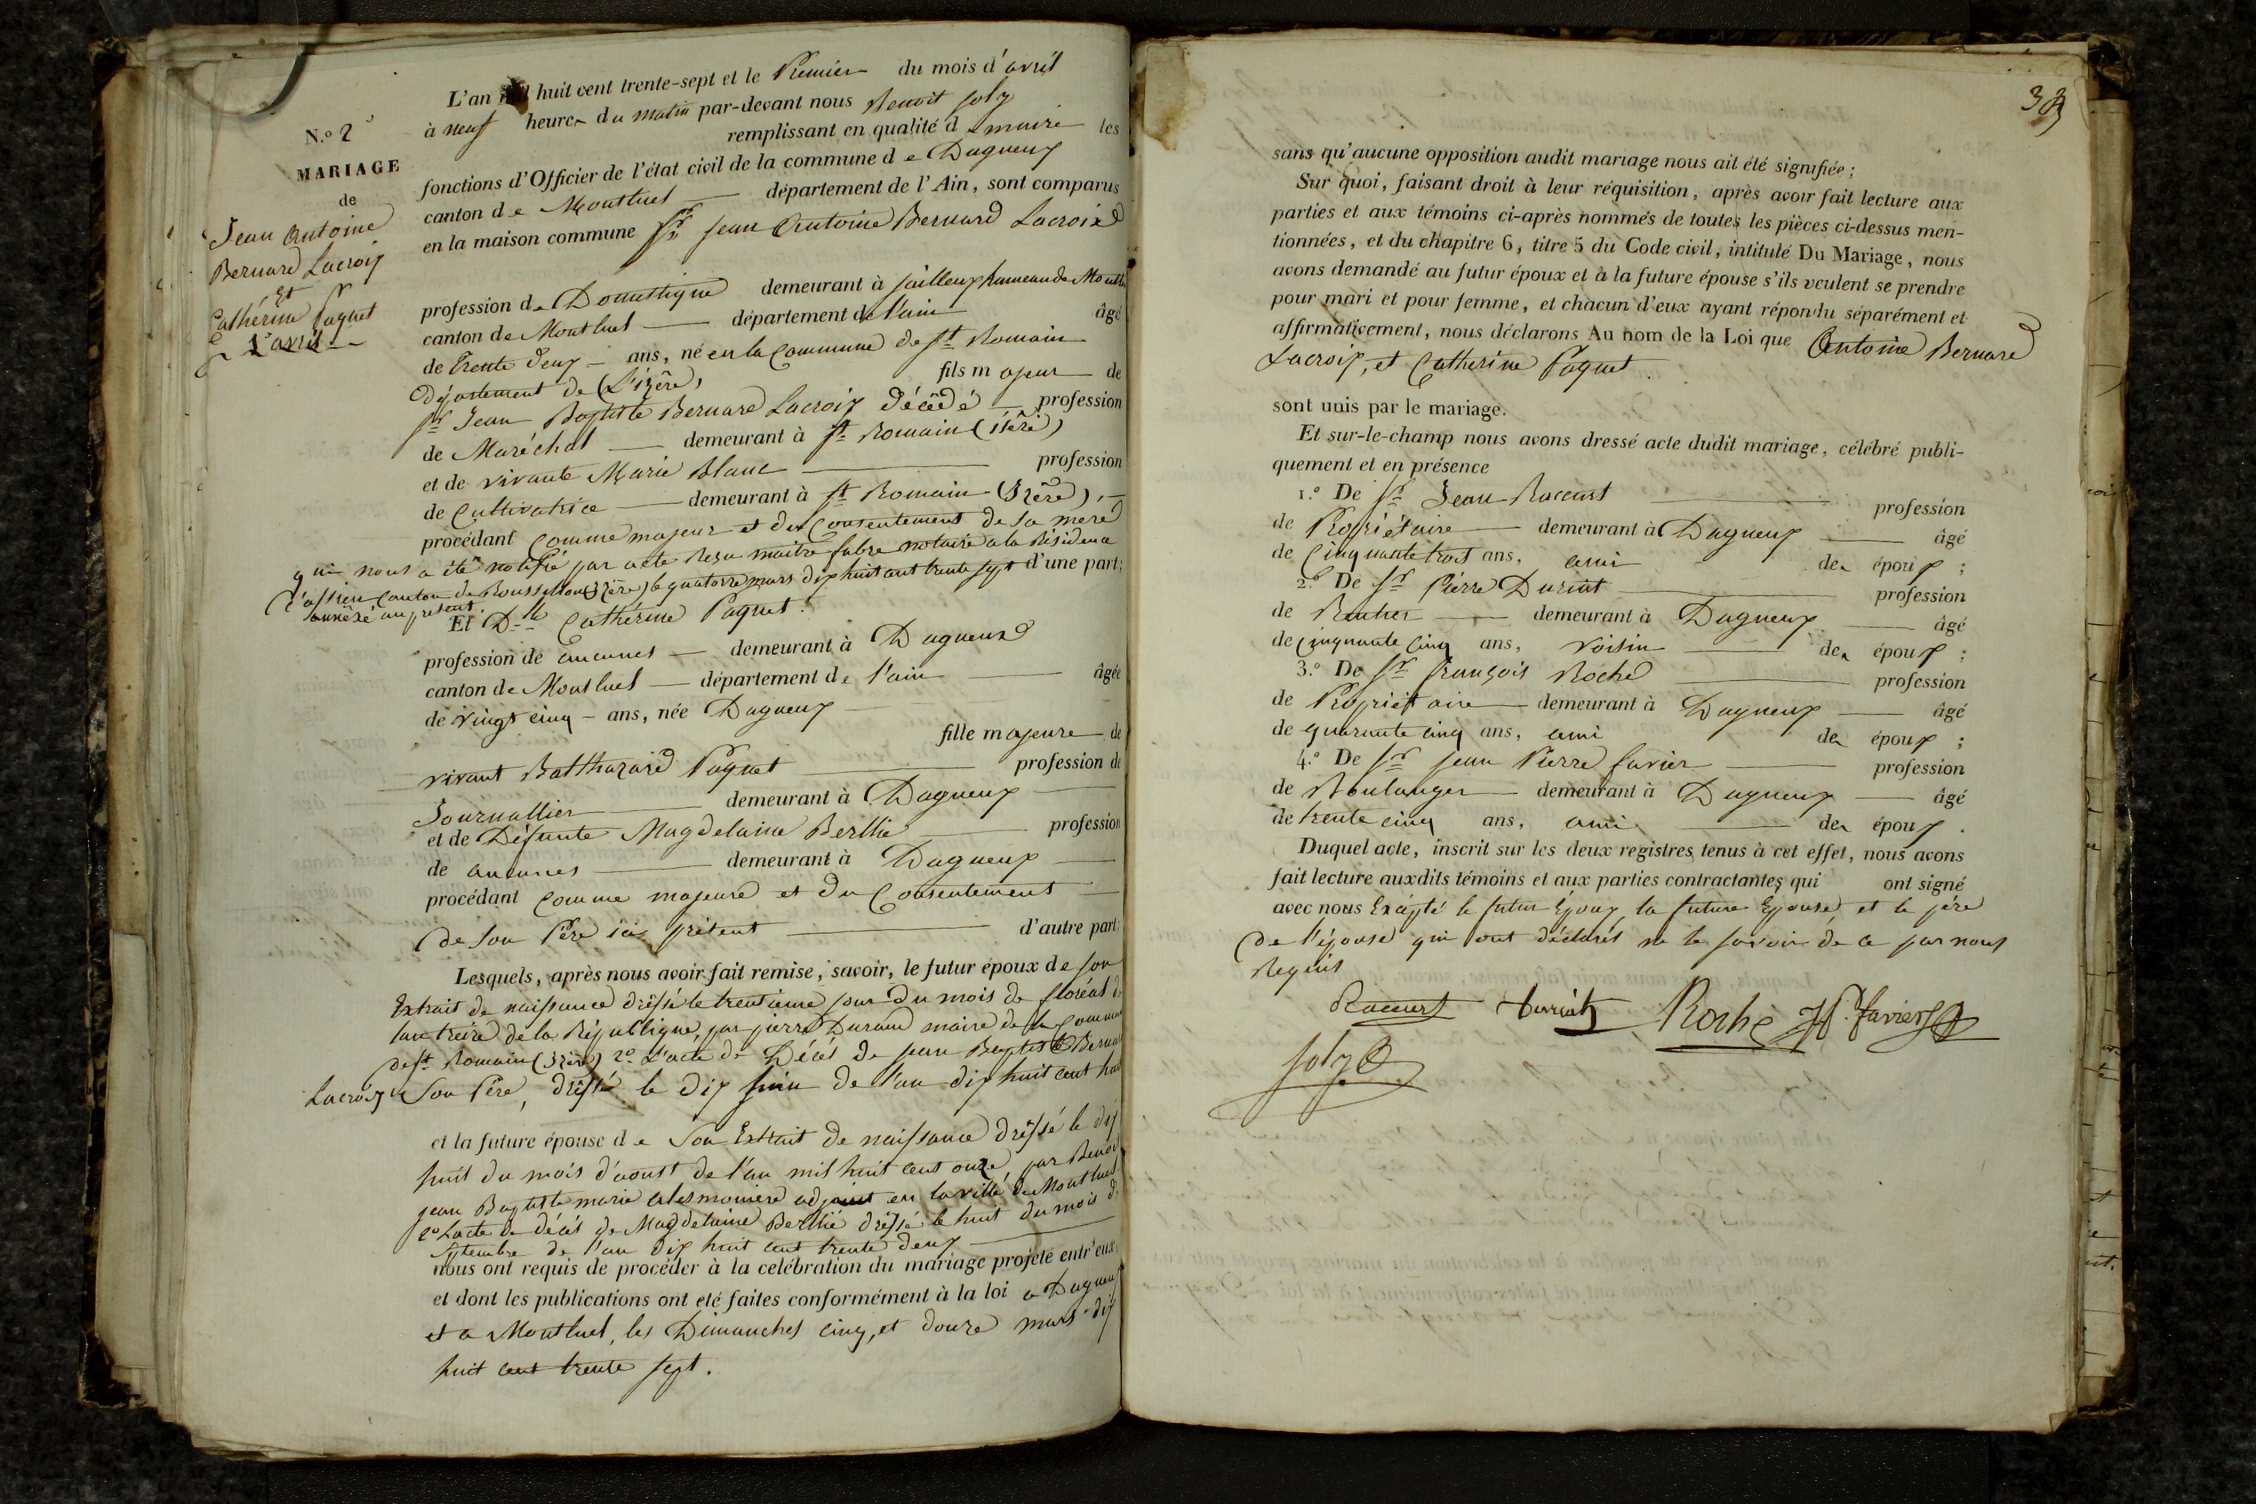 N.o 2
MARIAGE
de
Jean Antoine
Bernard Lacroix
Et
Cathérine Paquet
1er avril
L'an mil huit cent trente-sept et le Premier du mois d'avril
à neuf heures du matin par-devant nous Benoit Joly
remplissant en qualité de maire les
fonctions d'Officier de l'état civil de la commune de Dagneux
canton de Montluel département de l'Ain, sont comparus
en la maison commune Sr Jean Antoine Bernard Lacroix
profession de Domestique demeurant à Jailleux hameau de Montluel
canton de Montluel département de l'ain âgé
de Trente deux ans, né en la Commune de St Romain
Département de (L'izère) fils majeur de
Sr Jean Baptiste Bernard Lacroix décédé profession
de Maréchal demeurant à St Romain (isère)
et de vivante Marie Blanc profession
de Cultivatrice demeurant à St Romain (Izère)
procédant Comme majeur et du Consentement de sa mere
qui nous a été notifié par acte Resu maitre fabre notaire a la Résidence
d'assieu Canton de Roussillon (Izère) le quatorze mars dix huit cent trente sept d'une part;
annêxé au présent.
Et Dlle Cathérine Paquet
profession de aucunes demeurant à Dagneux
canton de Montluel département de l'ain âgée
de vingt cinq ans, née Dagneux
fille majeure de
vivant Balthazard Paquet profession de
Journallier demeurant à Dagneux
et de Défunte Magdelaine Berllié profession
de aucunes demeurant à Dagneux
procédant Comme majeure et du Consentement
de Son Père ici présent d'autre part.
Lesquels, après nous avoir fait remise, savoir, le futur époux de son
Extrait de naissance dréssé le trentieme jour du mois de floréal de
l'an treize de la République, par pierre Durand maire de la Commune
de St Romain (Izère) 2o L'acte de Décés de jean Baptiste Bernard
Lacroix Son Père, dréssé le dix juin de l'an dix huit cent huit
et la future épouse de Son Extrait de naissance dréssé le dix
huit du mois d'aoust de l'an mil huit cent onze, par Benoit
jean Baptiste marie alesmoniere adjoint en la ville de Montluel
2o L'acte de décés de Magdelaine Berllié dréssé le huit du mois de
Septembre de l'an dix huit cent trente deux
nous ont requis de procéder à la celébration du mariage projeté entr'eux,
et dont les publications ont été faites conformément à la loi a Dagneux
et a Montluel, les Dimanches cinq, et douze mars dix
huit cent trente sept.
33
sans qu'aucune opposition audit mariage nous ait été signifiée;
Sur quoi, faisant droit à leur réquisition, après avoir fait lecture aux
parties et aux témoins ci-après nommés de toutes les pièces ci-dessus men-
tionnées, et du chapitre 6, titre 5 du Code civil, intitulé Du Mariage, nous
avons demandé au futur époux et à la future épouse s'ils veulent se prendre
pour mari et pour femme, et chacun d'eux ayant répondu séparément et
affirmativement, nous déclarons Au nom de la Loi que Antoine Bernard
Lacroix, et Catherine Paquet
sont unis par le mariage.
Et sur-le-champ nous avons dressé acte dudit mariage, célébré publi-
quement et en présence
1.o De Sr Jean Raccurt profession
de Propriétaire demeurant à Dagneux âgé
de Cinquante trois ans, ami des époux;
2.o De Sr Pierre Duriat profession
de Rentier demeurant à Dagneux âgé
de cinquante cinq ans, voisin des époux;
3.o De Sr françois Roche profession
de Propriétaire demeurant à Dagneux âgé
de quarante cinq ans, ami des époux;
4.o De Sr jean Pierre favier profession
de Boulanger demeurant à Dagneux âgé
de trente cinq ans, ami des époux.
Duquel acte, inscrit sur les deux registres tenus à cet effet, nous avons
fait lecture auxdits témoins et aux parties contractantes qui ont signé
avec nous Excépté le futur Epoux, la future Epouse, et le pére
de l'épouse qui ont déclarés ne le savoir de ce par nous
Requis
Raccurt Duriat Roche JP. Favier
Joly